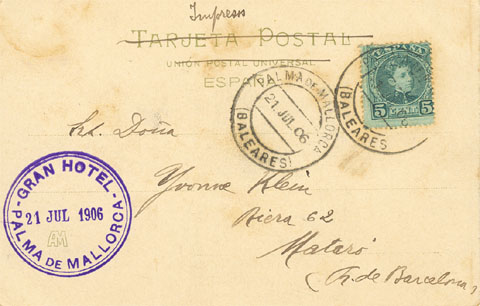 Impresos
TARJETA POSTAL
UNIÓN POSTAL UNIVERSAL
ESPAÑA
ESPAÑA
5 CENT. 5
PALMA DE MALLORCA
21 JUL 06
(BALEARES)
(BALEARES)
Doña
Yvonne Klein
Riera 62
Mataró
de Barcelona)
GRAN HOTEL
21 JUL 1906
AM
PALMA DE MALLORCA